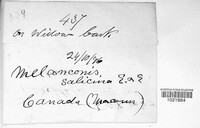 437
on Willow bark
24/10/96
Melanconis
salicina E. & E
Canada (Macoun)